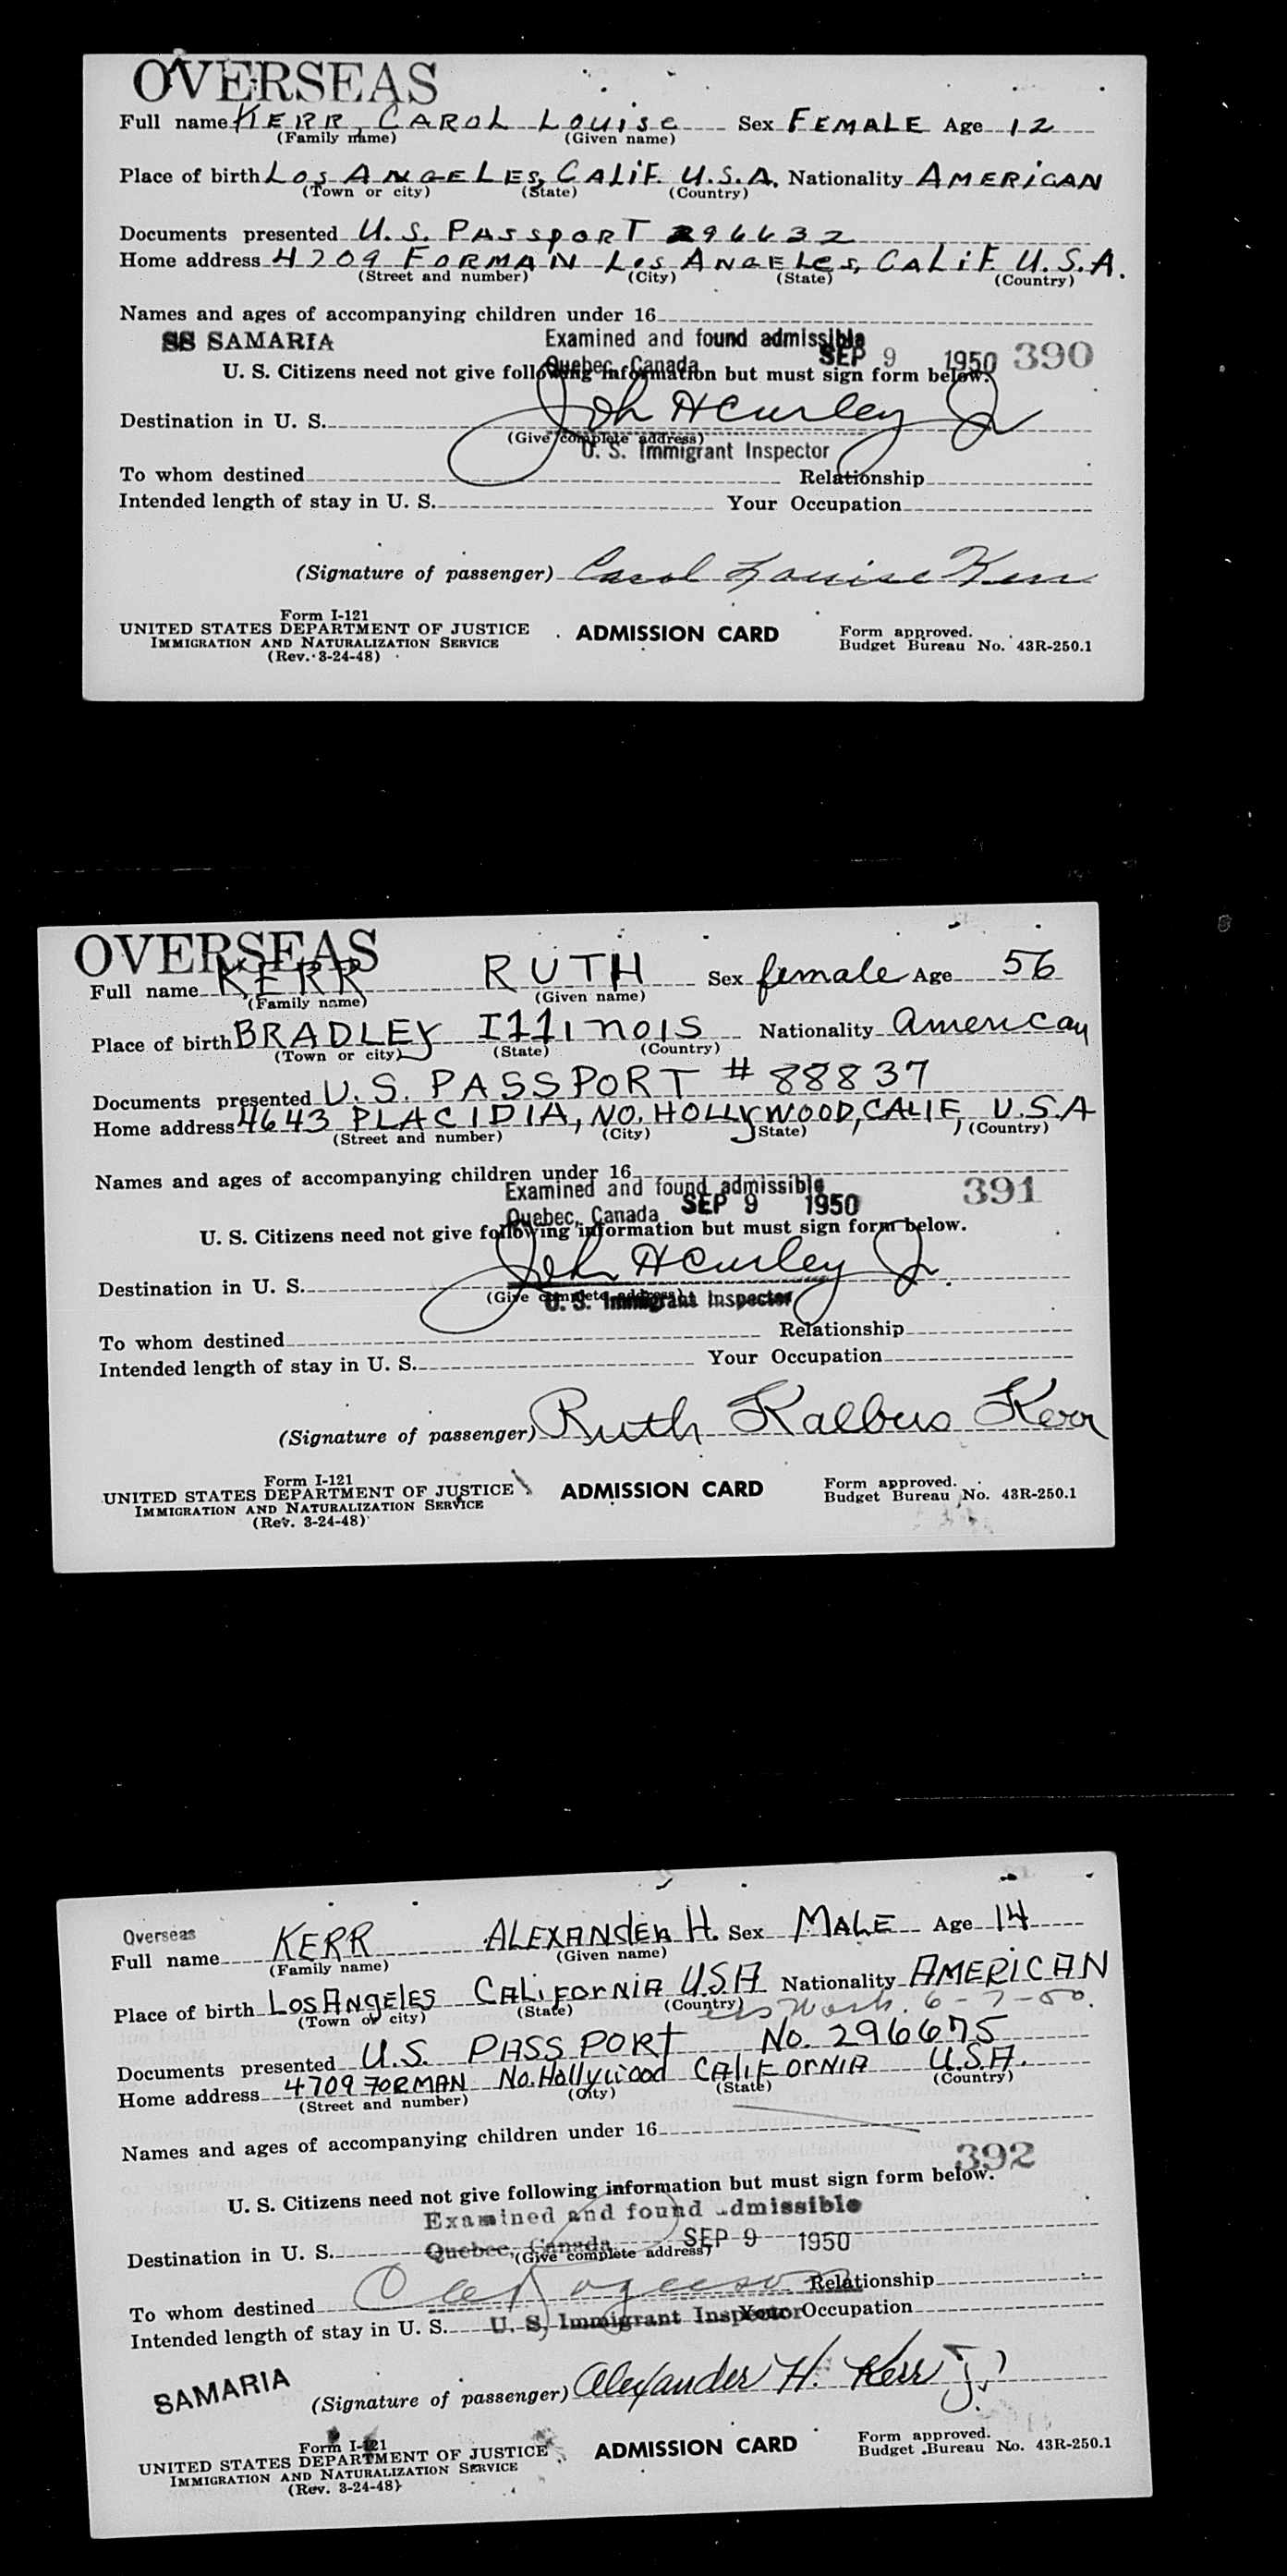 OVERSEAS
Full name KERR, CAROL Louise Sex FEMALE Age 12
(Family name) (Given name)
Place of birth Los ANGELES, CALiF. U.S.A. Nationality AMERiCAN
(Town or city) (State) (Country)
Documents presented U.S. PASSpORT 296632
Home address 4709 FORMAN Los ANGELes, CALiF. U.S.A.
(Street and number) (City) (State) (Country)
Names and ages of accompanying children under 16
SS SAMARIA Examined and found admissible
SEP 9 1950 390
Quebec, Canada
U. S. Citizens need not give following information but must sign form below.
Destination in U. S. John H Curley Jr
(Give complete address)
U. S. Immigrant Inspector
To whom destined Relationship
Intended length of stay in U. S. Your Occupation
(Signature of passenger) Carol Louise Kerr
Form I-121
UNITED STATES DEPARTMENT OF JUSTICE ADMISSION CARD Form approved.
IMMIGRATION AND NATURALIZATION SERVICE Budget Bureau No. 43R-250.1
(Rev. 3-24-48)
OVERSEAS
Full name KERR RUTH Sex female Age 56
(Family name) (Given name)
Place of birth BRADLEY IllinoIS Nationality American
(Town or city) (State) (Country)
Documents presented U.S. PASSPORT # 88837
Home address 4643 PLACIDIA, NO. HOLLYWOOD, CALIF, U.S.A
(Street and number) (City) (State) (Country)
Names and ages of accompanying children under 16
Examined and found admissible
Quebec, Canada SEP 9 1950 391
U. S. Citizens need not give following information but must sign form below.
Destination in U. S. John H Curley Jr.
(Give complete address)
U. S. Immigrant Inspector
To whom destined Relationship
Intended length of stay in U. S. Your Occupation
(Signature of passenger) Ruth Kalbus Kerr
Form I-121
UNITED STATES DEPARTMENT OF JUSTICE ADMISSION CARD Form approved.
IMMIGRATION AND NATURALIZATION SERVICE Budget Bureau No. 43R-250.1
(Rev. 3-24-48)
Overseas
Full name KERR ALEXANdER H. Sex MALE Age 14
(Family name) (Given name)
Place of birth Los ANgELES CALiFORNIA USA Nationality AMERiCAN
(Town or city) (State) (Country)
Wash. 6-7-50.
Documents presented U.S. PASSPORt No. 296675
Home address 4709 FORMAN No. Hollywood CAliFORNIA U.S.A.
(Street and number) (City) (State) (Country)
Names and ages of accompanying children under 16
392
U. S. Citizens need not give following information but must sign form below.
Examined and found admissible
Destination in U. S. Quebec, Canada SEP 9 1950
(Give complete address)
To whom destined Relationship
Intended length of stay in U. S. U. S. Immigrant Inspector Your Occupation
SAMARIA
(Signature of passenger) Alexander H. Kerr Jr.
Form I-121
UNITED STATES DEPARTMENT OF JUSTICE ADMISSION CARD Form approved.
IMMIGRATION AND NATURALIZATION SERVICE Budget Bureau No. 43R-250.1
(Rev. 3-24-48)